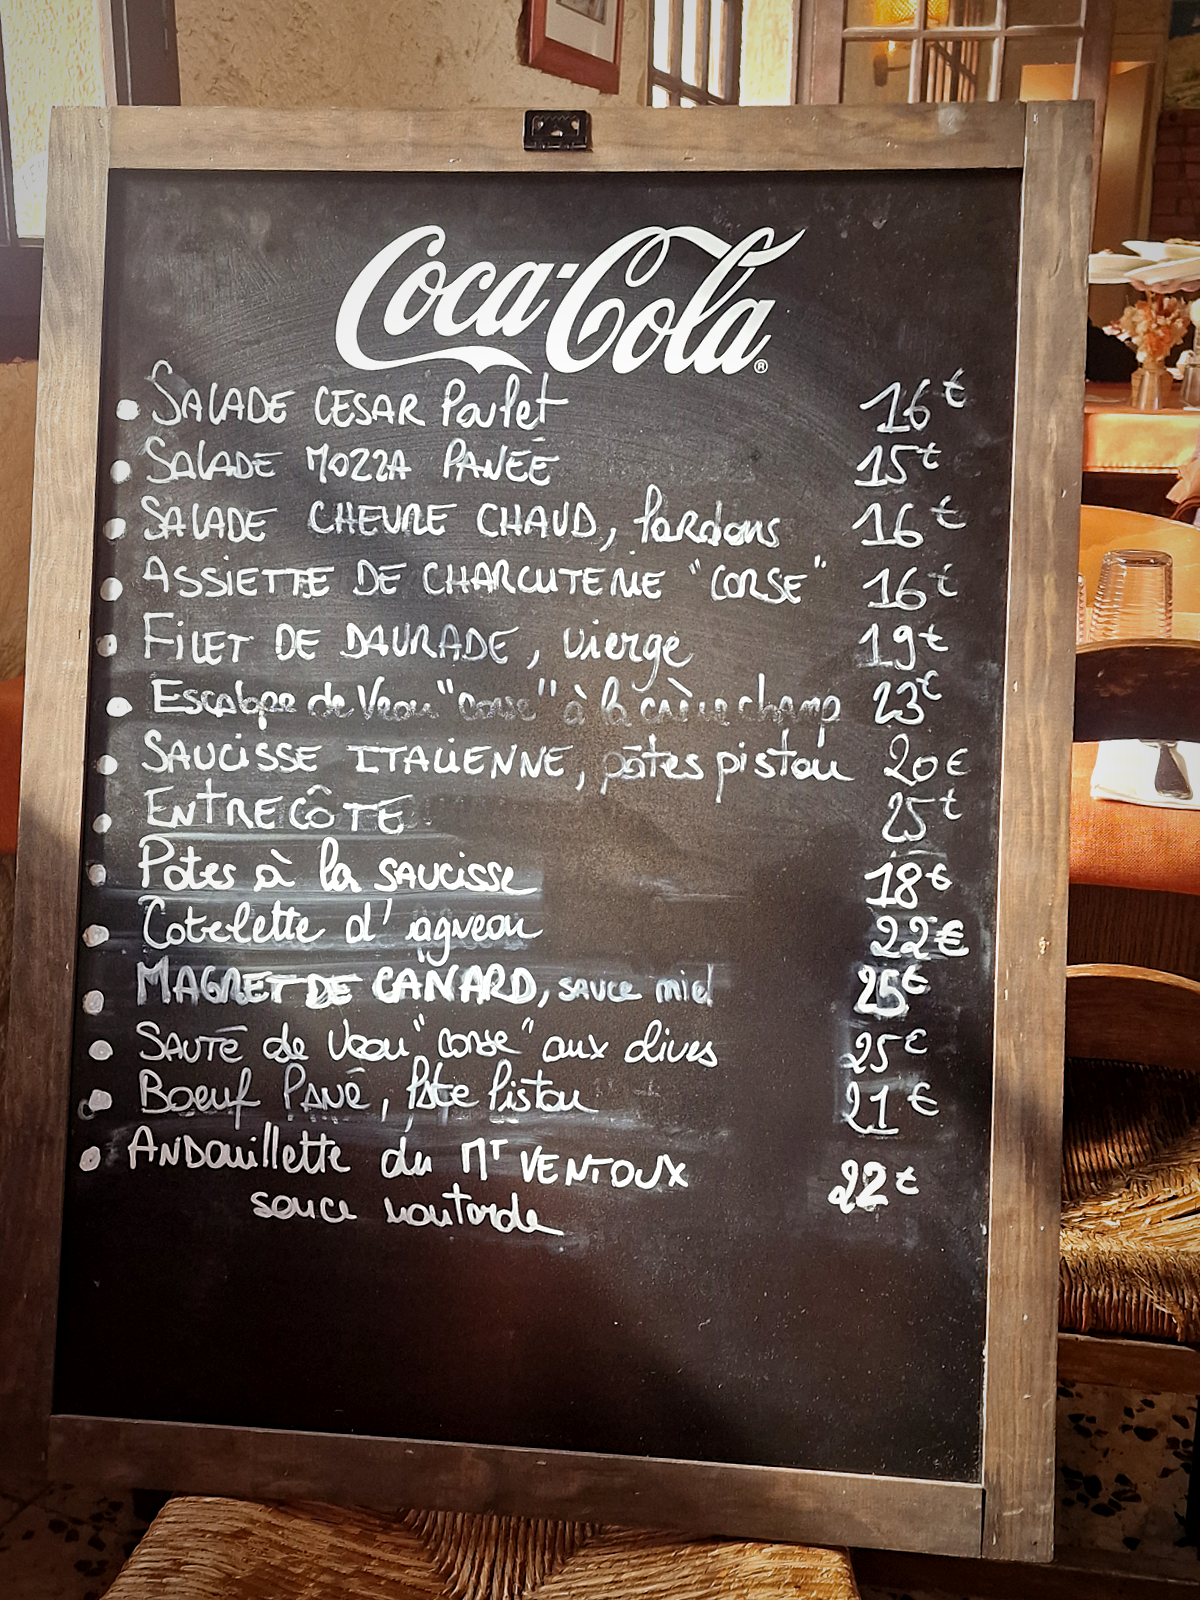 Coca-Cola®
• SALADE CESAR Poulet 16€
• SALADE MOZZA PANÉE 15€
• SALADE CHEVRE CHAUD, lardons 16€
• ASSIETTE DE CHARCUTERIE "CORSE" 16€
• FILET DE DAURADE, vierge 19€
• Escalope de Veau "corse" à la crème champ 23€
• SAUCISSE ITALIENNE, pâtes pistou 20€
• ENTRECÔTE 25€
• Pates à la saucisse 18€
• Cotelette d'agneau 22€
• MAGRET DE CANARD, sauce miel 25€
• SAUTÉ de Veau "corse" aux olives 25€
• Boeuf PANÉ, Pâte Pistou 21€
• ANDouillette du MT VENTOUX 22€
sauce moutarde